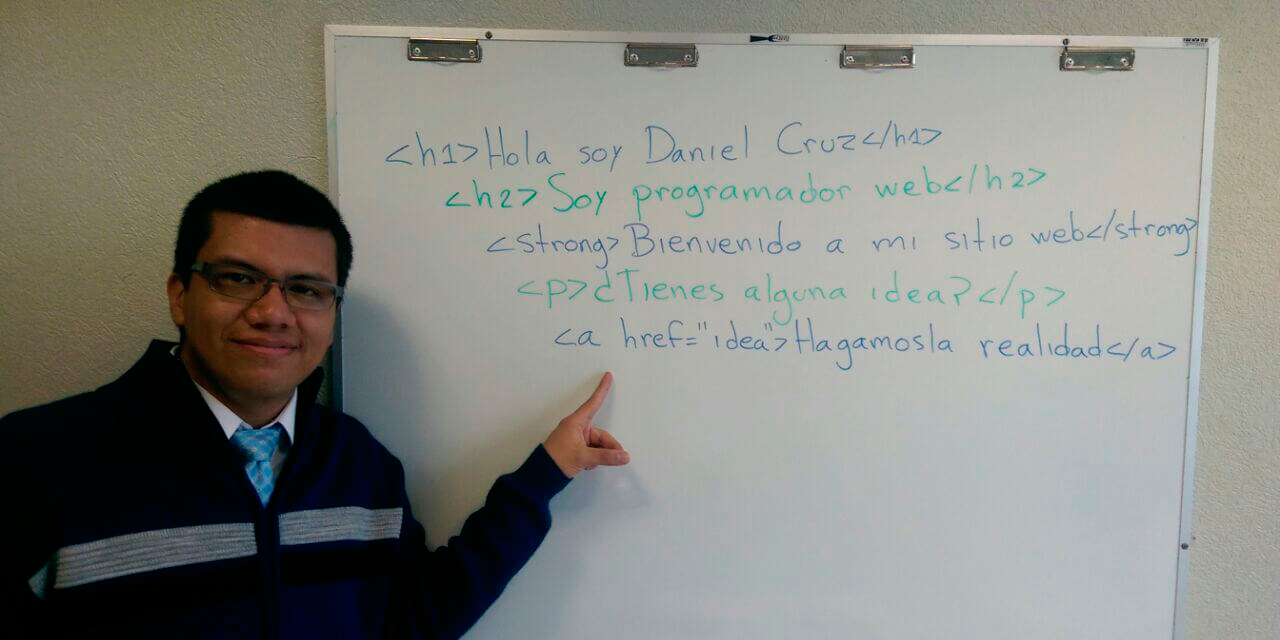 <h1>Hola soy Daniel Cruz</h1>
<h2>Soy programador web</h2>
<strong>Bienvenido a mi sitio web</strong>
<p>¿Tienes alguna idea?</p>
<a href="idea">Hagamosla realidad</a>